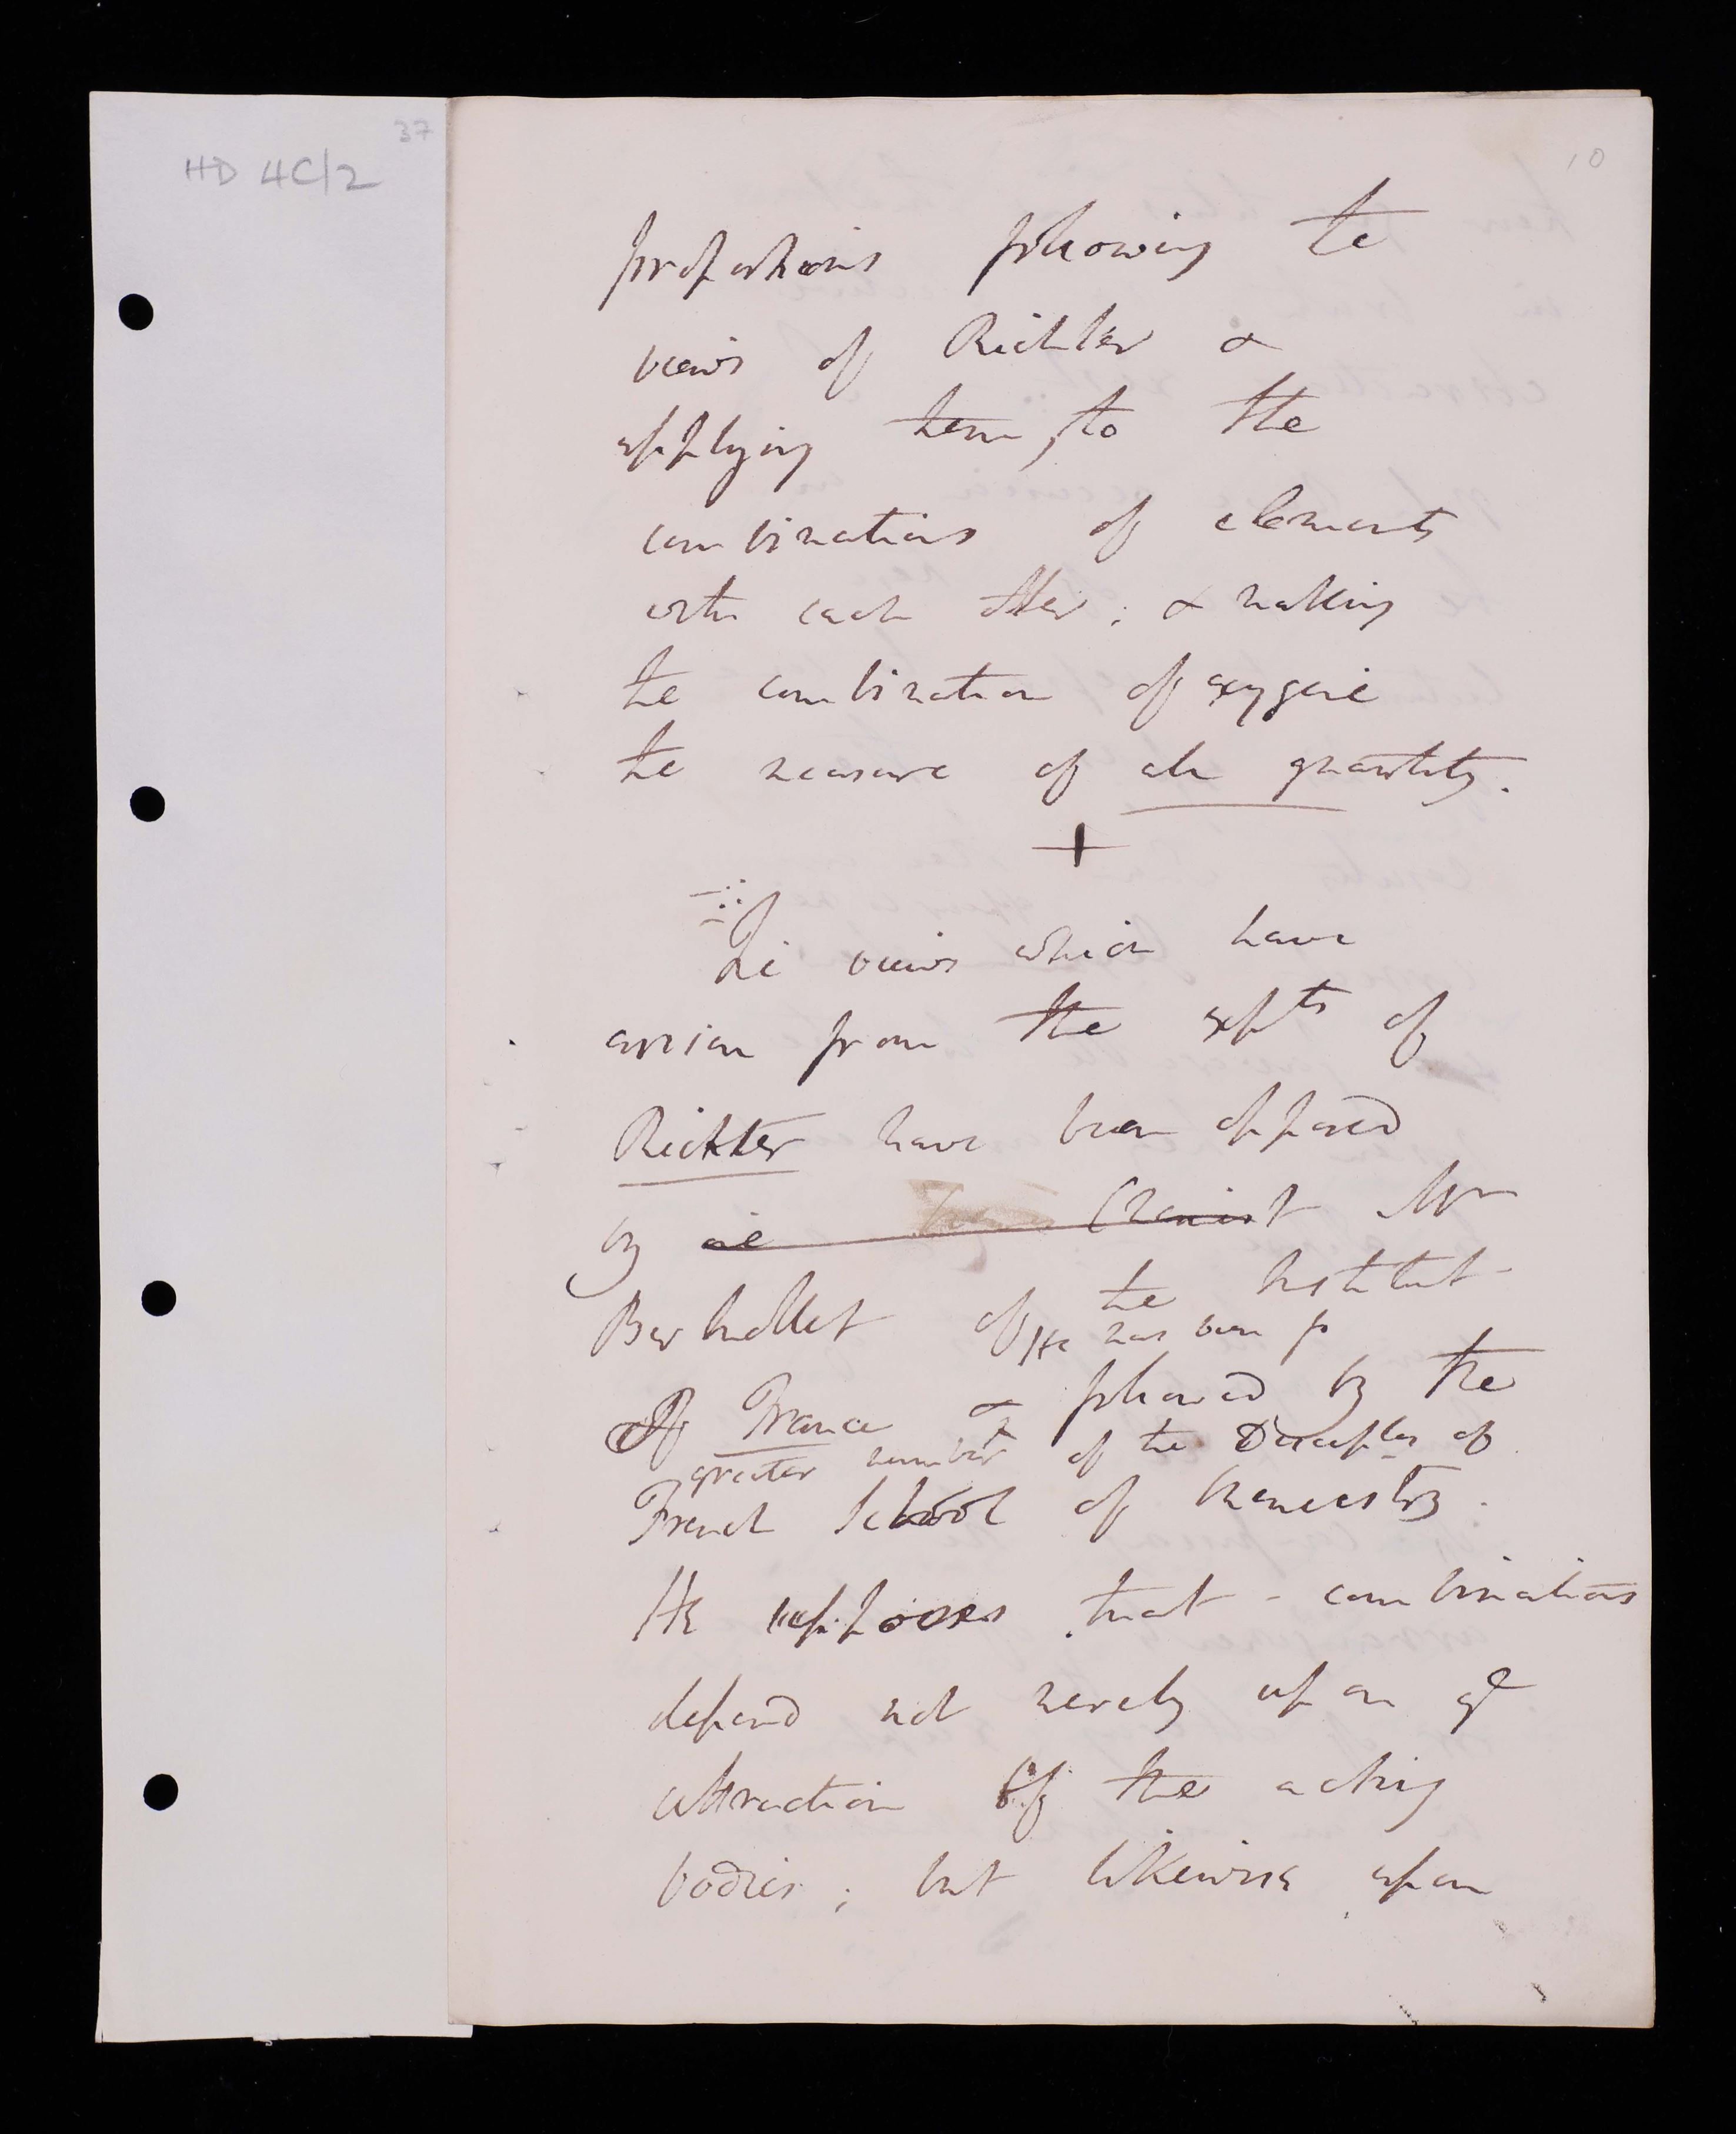 37
HD 4C/2
10
proportions following the
views of Richter &
applying them, to the
combinations of elements
with each other; & making
the combination of oxygene
the measure of all quantity.
+
The views which have
arisen from the expts of
Richter have been opposed
by Chemist Mr
Berthollet of the Institut
He has been
Of France & followed by the
greater number of the Disciples of
French School of Chemistry.
He supposes that - combinations
depend not merely upon ye
attraction Of the acting
bodies; but likewise upon